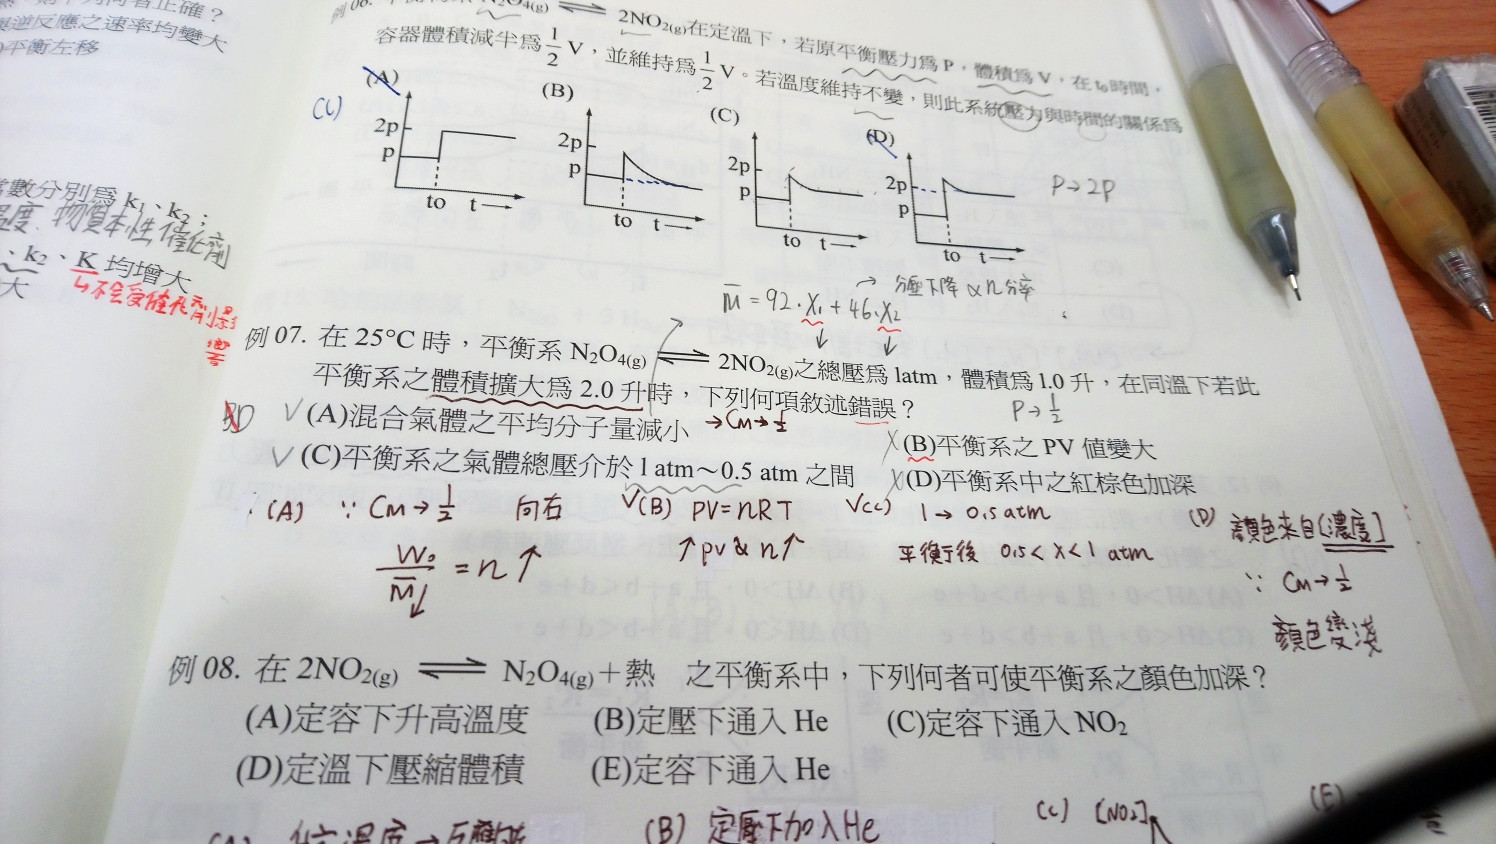 下列何者正確？
逆反應之速率均變大
平衡左移
2NO₂(g)在定溫下，若原平衡壓力為 P，體積為 V，在 t₀時間，
容器體積減半為 1/2 V，並維持為 1/2 V。若溫度維持不變，則此系統壓力與時間的關係為
(C)
(A) (B) (C) (D)
2p 2p 2p 2p P→2P
p p p p
to t→ to t→ to t→ to t→
數分別為 k₁、k₂；
物質本性 催化劑
、k₂、K 均增大
大 ↳不会受催化劑影
響
→ 分壓下降 ∝ n分率
M̄ = 92·X₁ + 46·X₂
例 07. 在 25°C 時，平衡系 N₂O₄(g) ⇌ 2NO₂(g)之總壓為 1atm，體積為 1.0 升，在同溫下若此
平衡系之體積擴大為 2.0 升時，下列何項敘述錯誤？ P→1/2
BD ✓(A)混合氣體之平均分子量減小 →CM→1/2 ✗(B)平衡系之 PV 值變大
✓(C)平衡系之氣體總壓介於 1 atm～0.5 atm 之間 ✗(D)平衡系中之紅棕色加深
(A) ∵ CM→1/2 向右 ✓(B) PV=nRT ✓(C) 1→0.5 atm (D) 顏色來自[濃度]
W₀/M̄↓ = n↑ ↑PV & n↑ 平衡後 0.5<X<1 atm ∵ CM→1/2
顏色變淺
例 08. 在 2NO₂(g) ⇌ N₂O₄(g)+熱 之平衡系中，下列何者可使平衡系之顏色加深？
(A)定容下升高溫度 (B)定壓下通入 He (C)定容下通入 NO₂
(D)定溫下壓縮體積 (E)定容下通入 He
(B) 定壓下加入He (C) [NO₂]↑ (E)